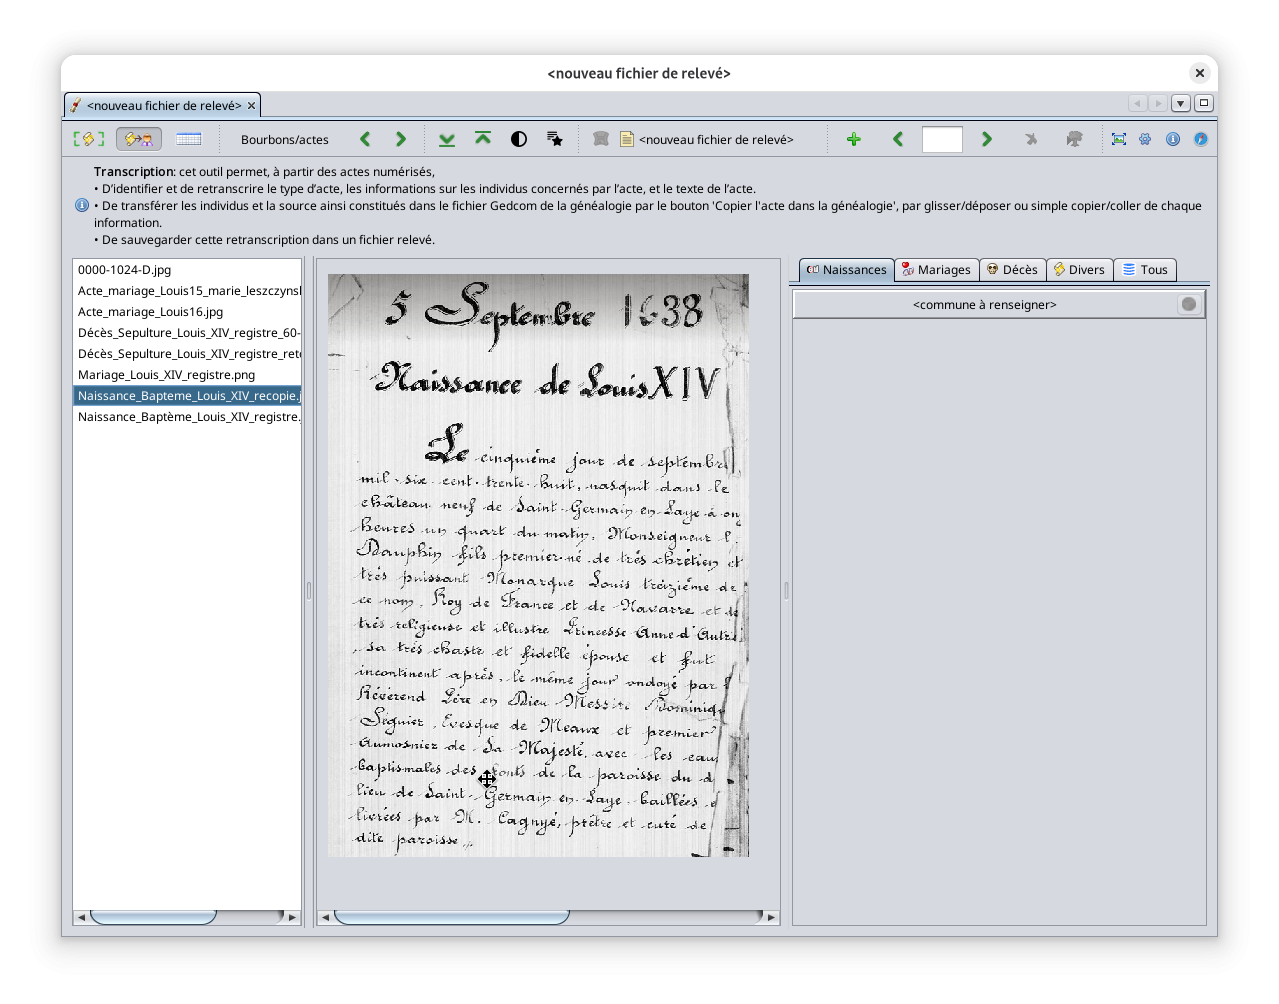 <nouveau fichier de relevé>
<nouveau fichier de relevé>
Bourbons/actes
<nouveau fichier de relevé>
Transcription: cet outil permet, à partir des actes numérisés,
• D'identifier et de retranscrire le type d'acte, les informations sur les individus concernés par l'acte, et le texte de l'acte.
• De transférer les individus et la source ainsi constitués dans le fichier Gedcom de la généalogie par le bouton 'Copier l'acte dans la généalogie', par glisser/déposer ou simple copier/coller de chaque
information.
• De sauvegarder cette retranscription dans un fichier relevé.
0000-1024-D.jpg
Acte_mariage_Louis15_marie_leszczynsl
Acte_mariage_Louis16.jpg
Décès_Sepulture_Louis_XIV_registre_60-
Décès_Sepulture_Louis_XIV_registre_reto
Mariage_Louis_XIV_registre.png
Naissance_Bapteme_Louis_XIV_recopie.j
Naissance_Baptème_Louis_XIV_registre.
5 Septembre 1638
Naissance de Louis XIV
Le cinquième jour de septembr
mil six cent trente huit, nasquit dans le
château neuf de Saint Germain en Laye à on
heures un quart du matin, Monseigneur l
Dauphin fils premier né de très chrétien et
très puissant Monarque Louis treizième de
ce nom, Roy de France et de Navarre et de
très religieuse et illustre Princesse Anne d'Autri
sa très chaste et fidelle épouse et fut
incontinent après, le même jour ondoyé par l
Révérend Père en Dieu Messire Dominiqu
Séguier, Evesque de Meaux et premier
Aumosnier de Sa Majesté, avec les eau
baptismales des fonts de la paroisse du d
lieu de Saint Germain en Laye baillées e
livrées par M. Cagnyé, prêtre et curé de
dite paroisse
Naissances
Mariages
Décès
Divers
Tous
<commune à renseigner>